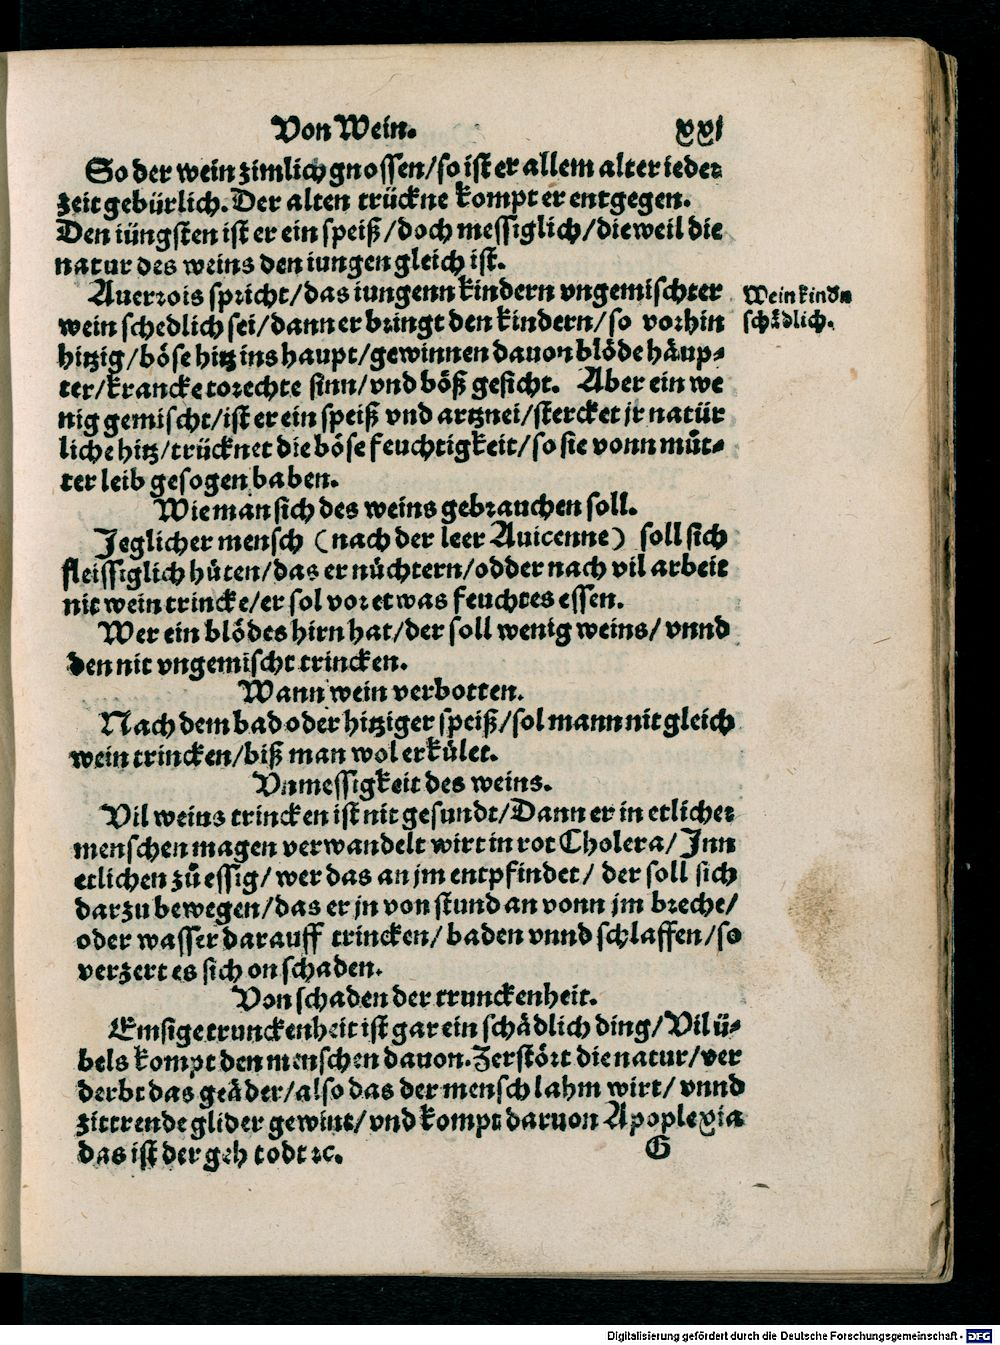 Von Wein. xxi
So der wein zimlich gnossen/so ist er allem alter ieder
zeit gebürlich. Der alten trückne kompt er entgegen.
Den iüngsten ist er ein speiß/doch messiglich/dieweil die
natur des weins den iungen gleich ist.
Auerrois spricht/das iungenn kindern vngemischter
wein schedlich sei/dann er bringt den kindern/so vorhin
hitzig/böse hitz ins haupt/gewinnen dauon blöde häup-
ter/krancke torechte sinn/vnd böß gesicht. Aber ein we
nig gemischt/ist er ein speiß vnd artznei/stercket jr natür
liche hitz/trücknet die böse feuchtigkeit/so sie vonn můt-
ter leib gesogen haben.
Wein kindn
schädlich.
Wie man sich des weins gebrauchen soll.
Jeglicher mensch (nach der leer Auicenne) soll sich
fleissiglich hüten/das er nüchtern/odder nach vil arbeit
nit wein trincke/er sol vor etwas feuchtes essen.
Wer ein blödes hirn hat/der soll wenig weins/vnnd
den nit vngemischt trincken.
Wann wein verbotten.
Nach dem bad oder hitziger speiß/sol mann nit gleich
wein trincken/biß man wol erkület.
Vnmessigkeit des weins.
Vil weins trincken ist nit gesundt/Dann er in etlicher
menschen magen verwandelt wirt in rot Cholera/Inn
etlichen zů essig/wer das an jm entpfindet/der soll sich
darzu bewegen/das er jn von stund an vonn jm breche/
oder wasser darauff trincken/baden vnnd schlaffen/so
verzert es sich on schaden.
Von schaden der trunckenheit.
Emsige trunckenheit ist gar ein schädlich ding/Vil ü-
bels kompt den menschen dauon. Zerstört die natur/ver
derbt das geäder/also das der mensch lahm wirt/vnnd
zittrende glider gewint/vnd kompt daruon Apoplexia
das ist der geh todt ꝛc. G
Digitalisierung gefördert durch die Deutsche Forschungsgemeinschaft - DFG